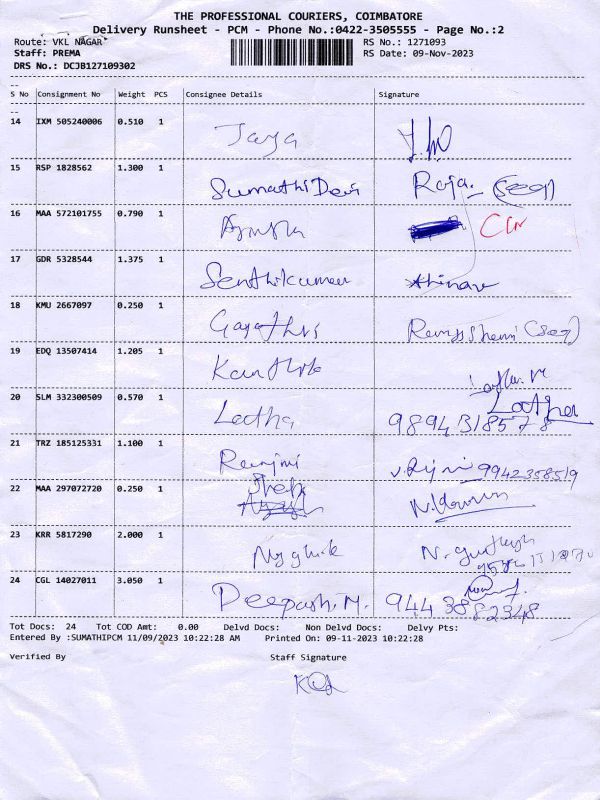 THE PROFESSIONAL COURIERS, COIMBATORE
Delivery Runsheet - PCM - Phone No.:0422-3505555 - Page No.:2
Route: VKL NAGAR RS No.: 1271093
Staff: PREMA RS Date: 09-Nov-2023
DRS No.: DCJB127109302
S No Consignment No Weight PCS Consignee Details Signature
14 IXM 505240006 0.510 1 Jaya
15 RSP 1828562 1.300 1 Sumathi Devi Raja
16 MAA 572101755 0.790 1
17 GDR 5328544 1.375 1 Senthilkumar Abinav
18 KMU 2667097 0.250 1 Gayathri
19 EDQ 13507414 1.205 1
20 SLM 332300509 0.570 1 Latha Latha
9894318578
21 TRZ 185125331 1.100 1 Ranjini 9942358519
22 MAA 297072720 0.250 1
23 KRR 5817290 2.000 1
24 CGL 14027011 3.050 1 Deepashi.M.
Tot Docs: 24 Tot COD Amt: 0.00 Delvd Docs: Non Delvd Docs: Delvy Pts:
Entered By :SUMATHIPCM 11/09/2023 10:22:28 AM Printed On: 09-11-2023 10:22:28
Verified By Staff Signature